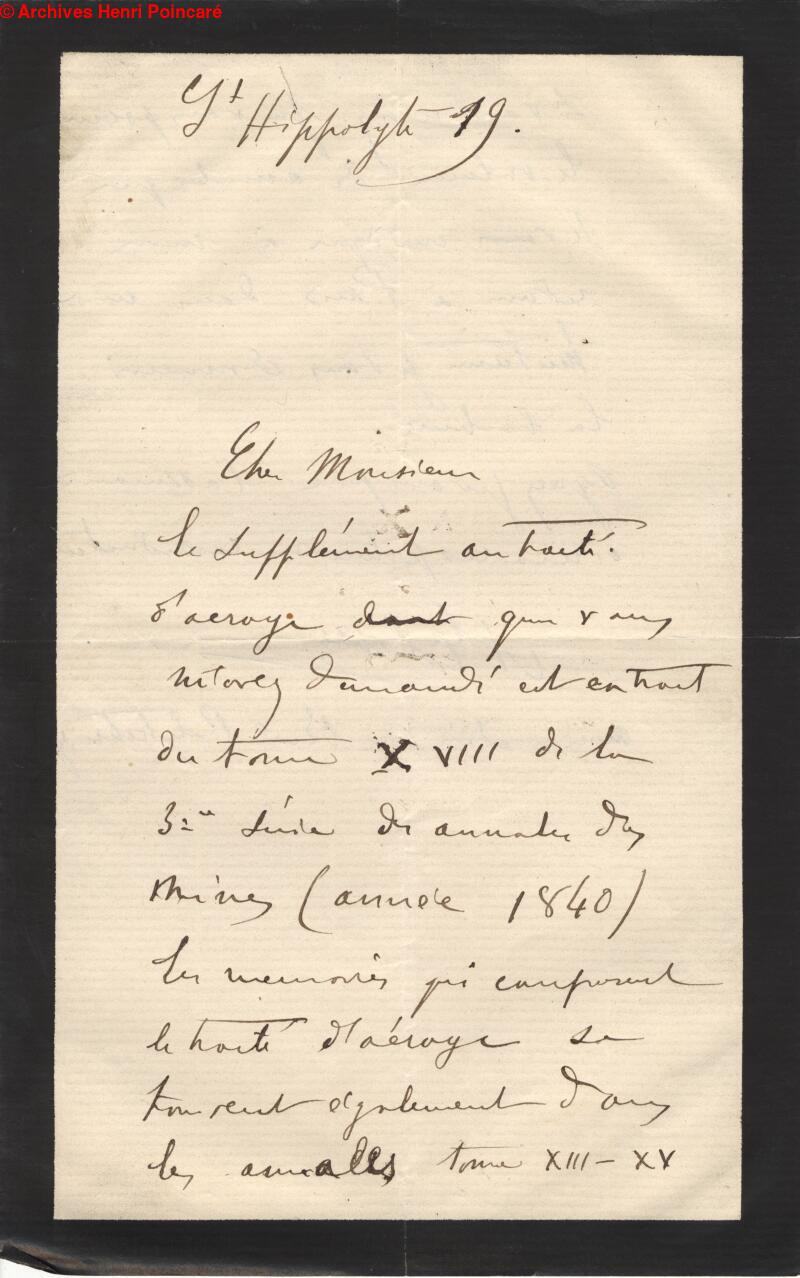 © Archives Henri Poincaré
St Hippolyte 19.
Cher Monsieur
le supplément au traité
d'aérage dont que vous
m'avez demandé est extrait
du tome XVIII de la
3me série des annales des
Mines (année 1840)
Les memoires qui composent
le traité d'aérage se
trouvent également dans
les annales tome XIII – XV